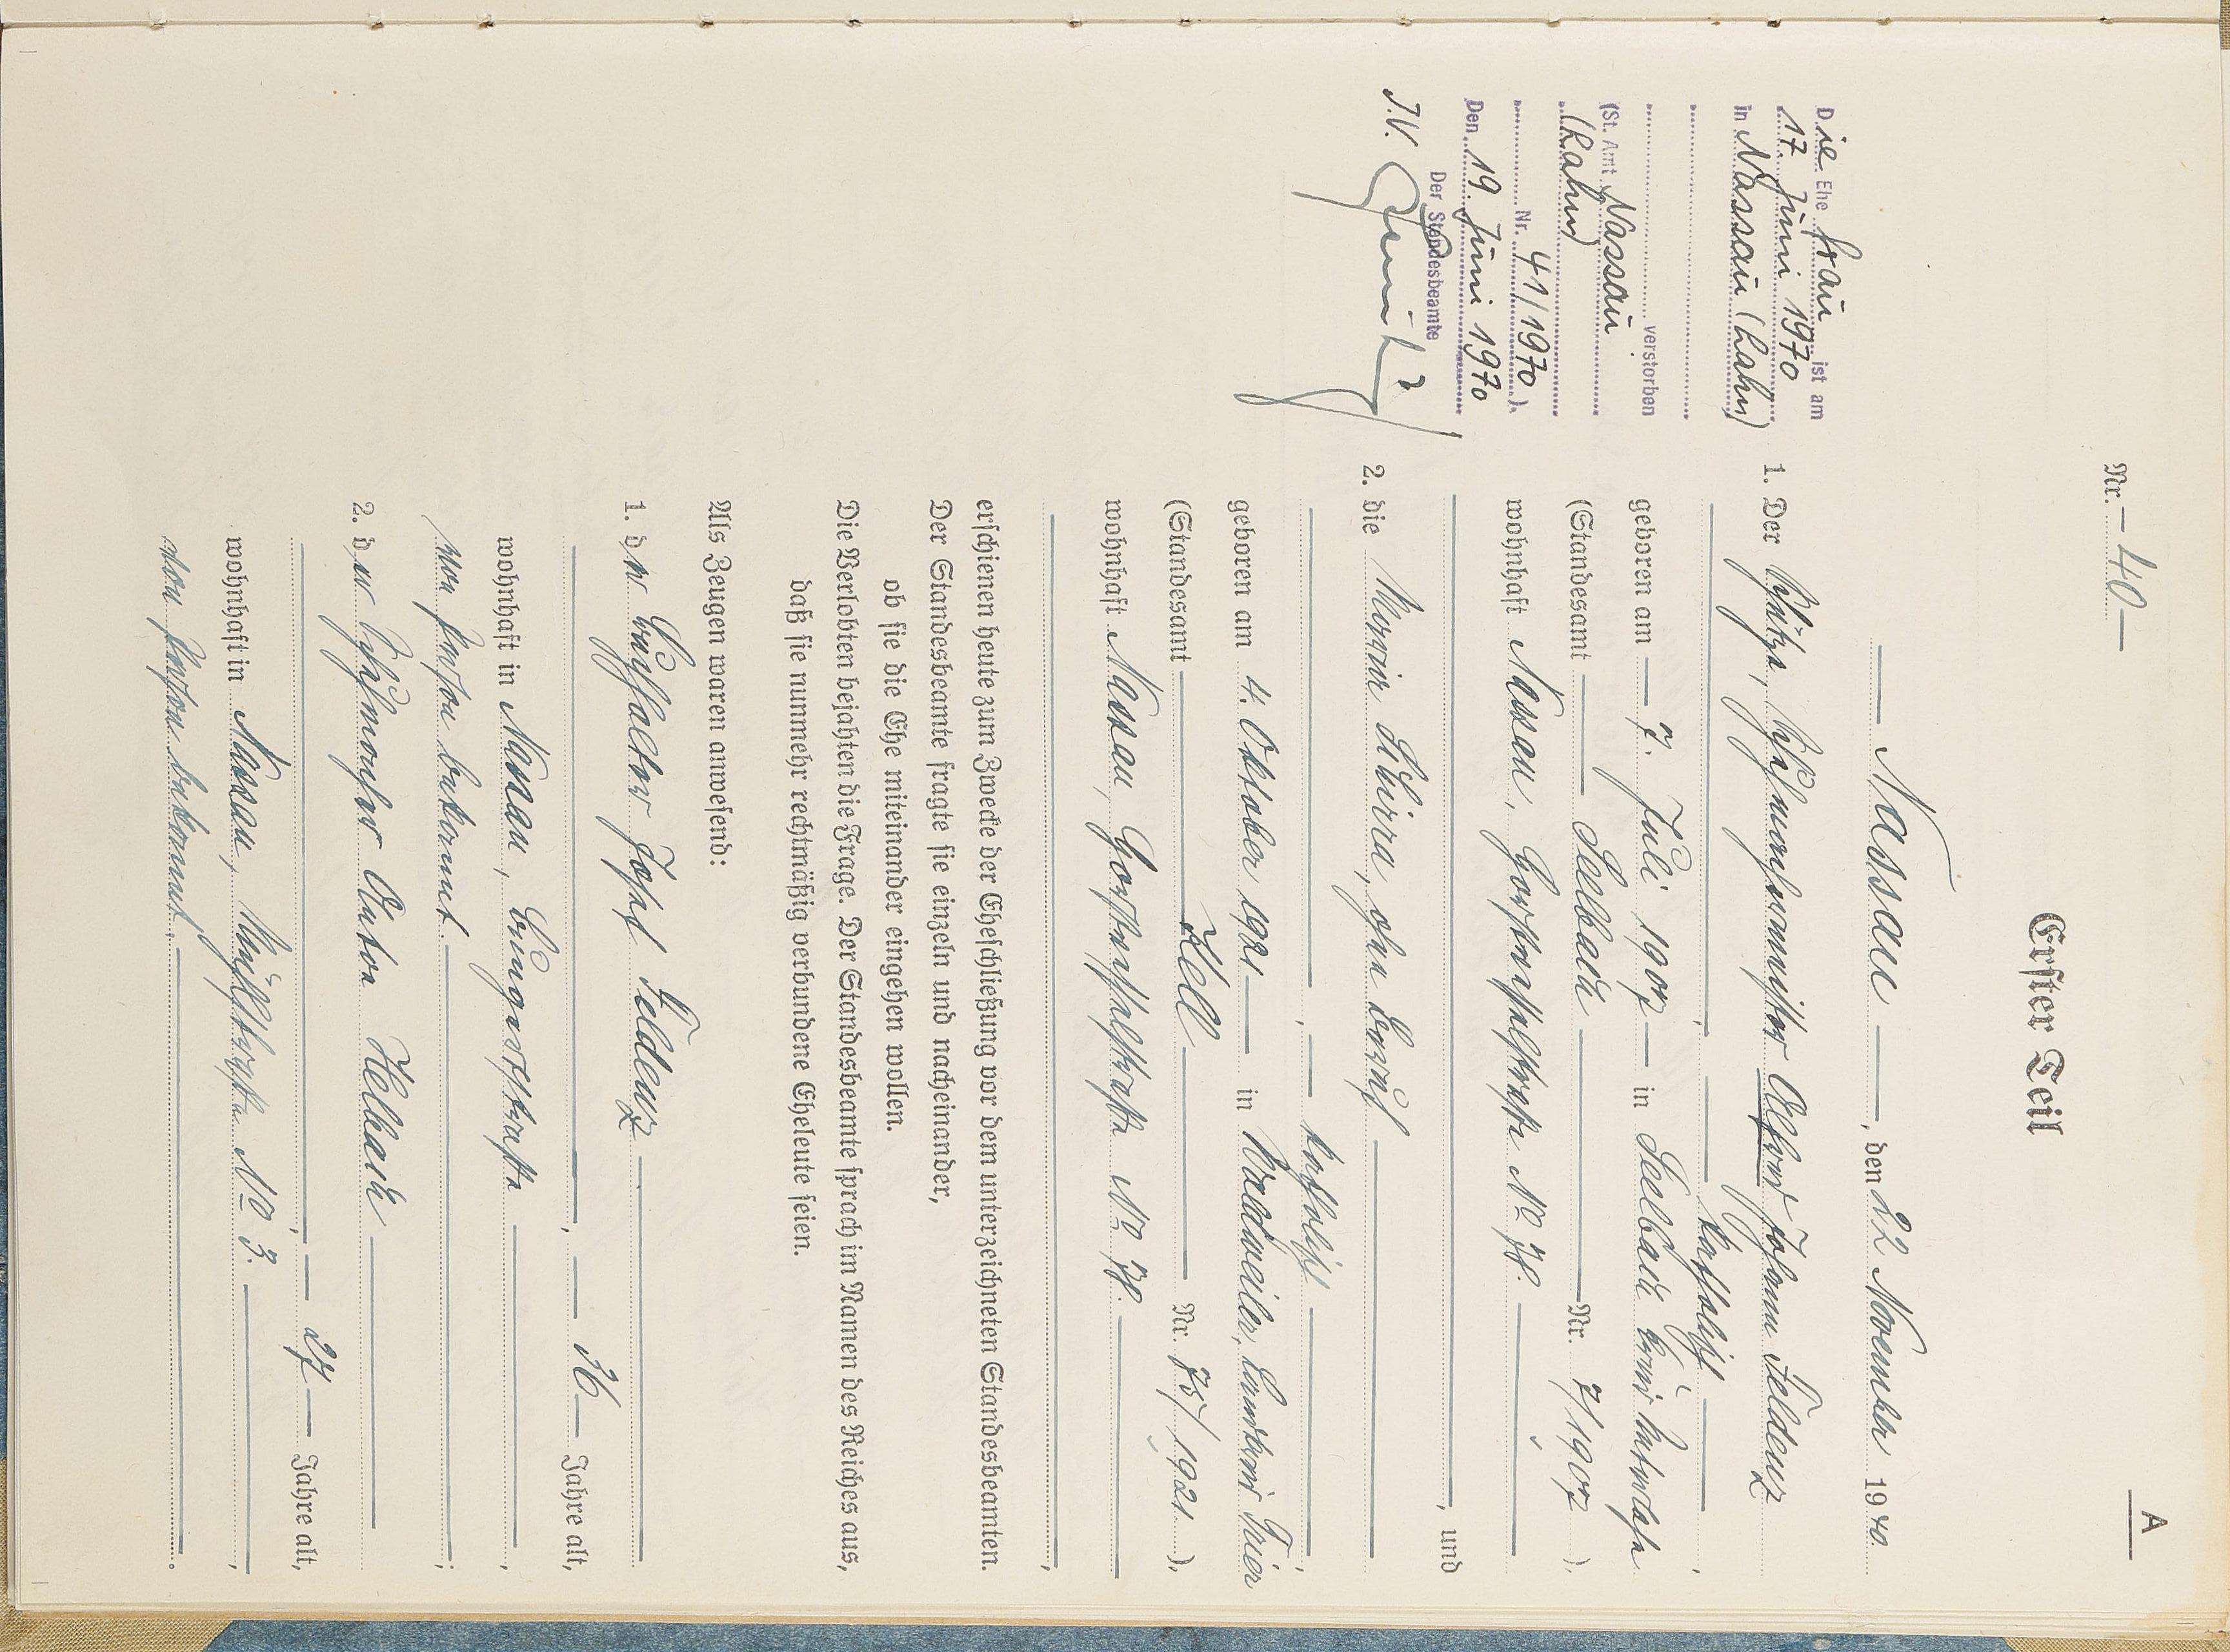 A
Nr. — 40 —
Erster Teil
— Nassau —, den 22 November 1940.
1. Der Schütze, Schuhmachermeister Alfons Johann Feldenz
—, — katholisch —,
geboren am — 7. Juli 1907 — in Seelbach
(Standesamt — Seelbach — Nr. 7/1907 ),
wohnhaft Nassau, No 78. —
—, und
2. die Maria Thurra, ohne Beruf —
—, — katholisch —,
geboren am 4. Oktober 1921 — in Waldweiler, Landkreis Trier
(Standesamt — Kell — Nr. 75/1921 ),
wohnhaft Nassau, No 78. —
—,
erschienen heute zum Zwecke der Eheschließung vor dem unterzeichneten Standesbeamten.
Der Standesbeamte fragte sie einzeln und nacheinander,
ob sie die Ehe miteinander eingehen wollen.
Die Verlobten bejahten die Frage. Der Standesbeamte sprach im Namen des Reiches aus,
daß sie nunmehr rechtmäßig verbundene Eheleute seien.
Als Zeugen waren anwesend:
1. der Josef Feldenz —
—, — 36 — Jahre alt,
wohnhaft in Nassau, —,
von Person bekannt —;
2. der Schuhmacher Anton Helbach —
—, — 27 — Jahre alt,
wohnhaft in Nassau, No 3. —,
von Person bekannt. —.
Die Ehefrau ist am
17. Juni 1970
in Nassau (Lahn)
verstorben
(St. Amt Nassau
(Lahn)
Nr. 41/1970 ).
Den 19. Juni 1970
Der Standesbeamte
I.V.